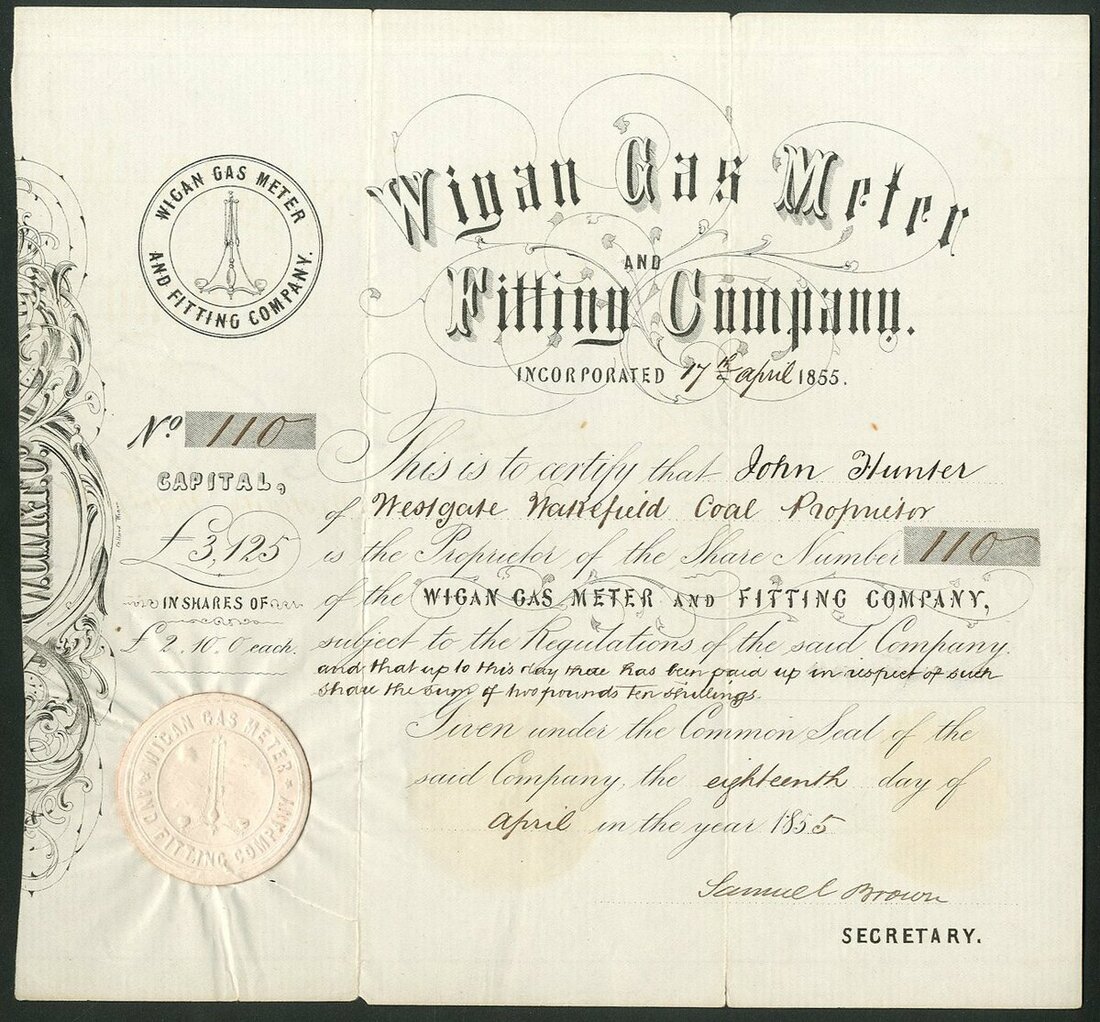 WIGAN GAS METER
AND FITTING COMPANY.
Wigan Gas Meter
AND
Fitting Company.
INCORPORATED 17th April 1855.
No 110
CAPITAL,
£3,125
IN SHARES OF
£2.10.0 each.
This is to certify that John Hunter
of Westgate Wakefield Coal Proprietor
is the Proprietor of the Share Number 110
of the WIGAN GAS METER AND FITTING COMPANY,
subject to the Regulations of the said Company.
and that up to this day there has been paid up in respect of such
share the sum of two pounds ten shillings.
Given under the Common Seal of the
said Company, the eighteenth day of
April in the year 1855
WIGAN GAS METER
AND FITTING COMPANY
Samuel Brown
SECRETARY.